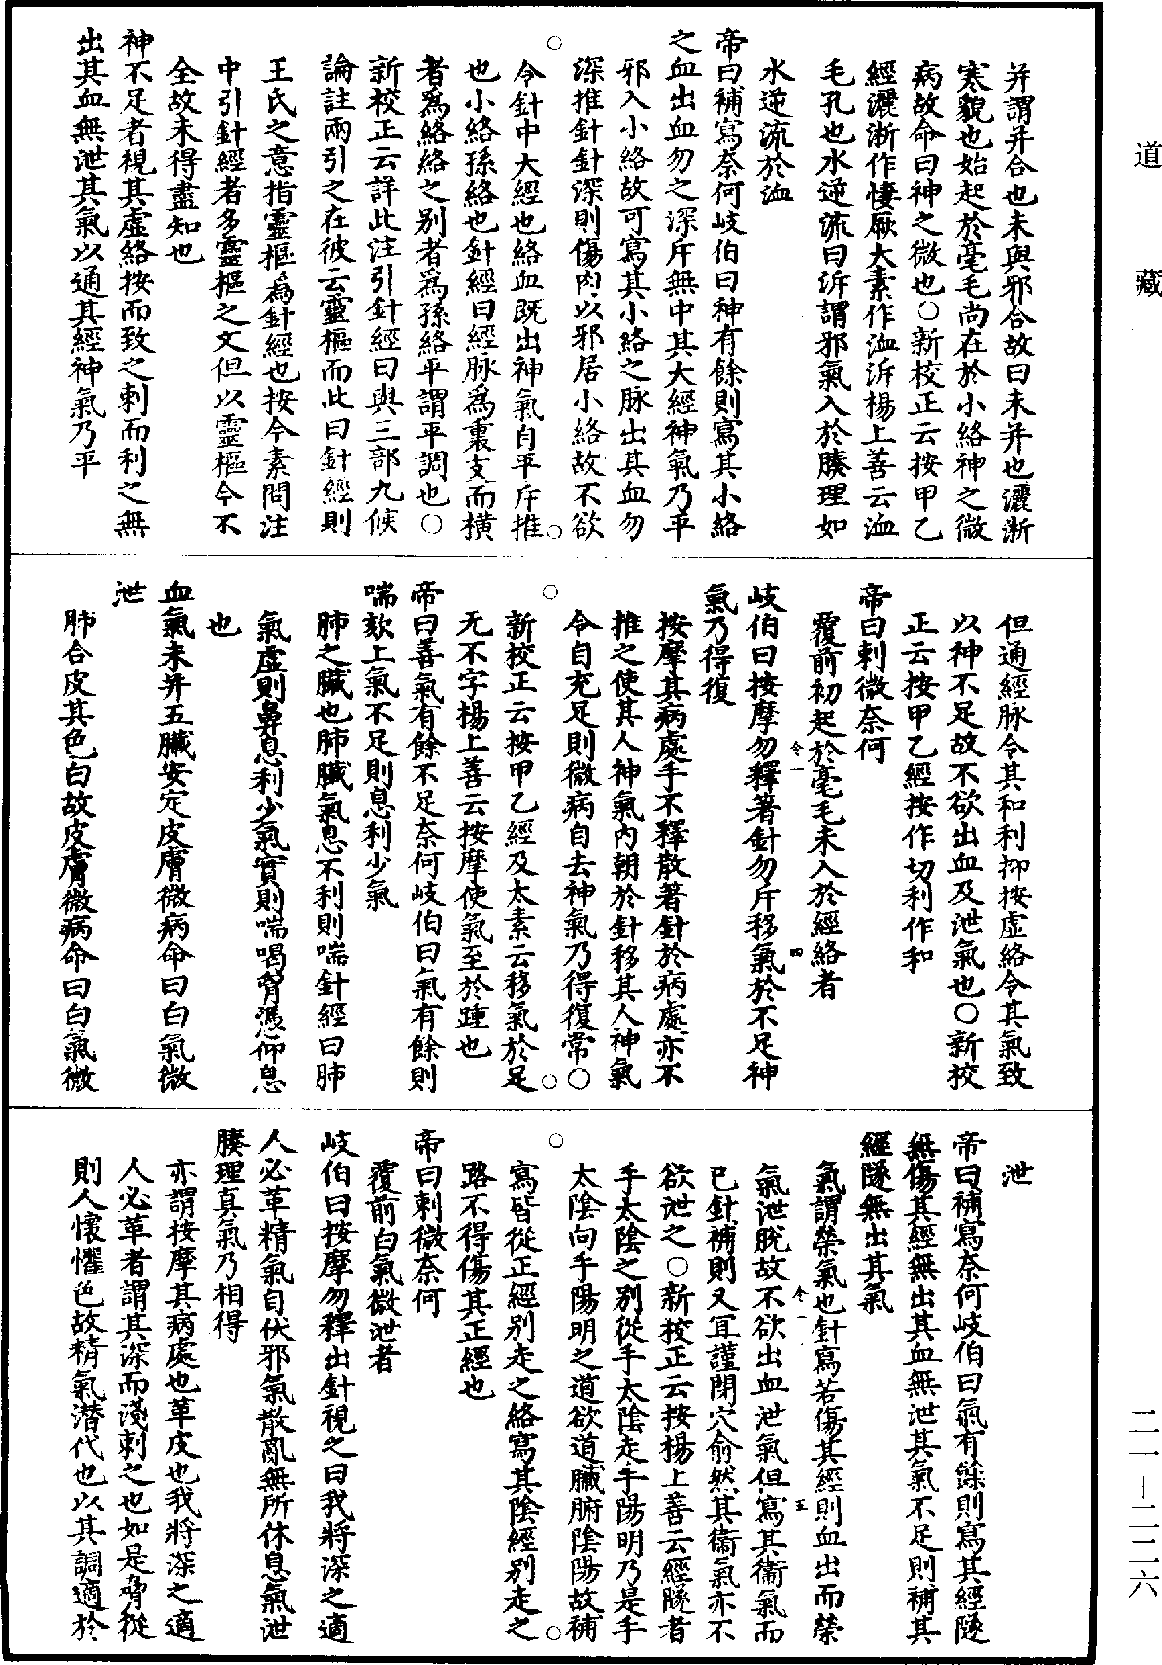 道藏
并謂并合也未與邪合故曰未并也灑淅
寒貌也始起於毫毛尚在於小絡神之微
病故命曰神之微也○新校正云按甲乙
經灑淅作悽厥大素作洫泝楊上善云洫
毛孔也水逆流曰泝謂邪氣入於腠理如
水逆流於洫
帝曰補寫奈何岐伯曰神有餘則寫其小絡
之血出血勿之深斥無中其大經神氣乃平
邪入小絡故可寫其小絡之脉出其血勿
深推針針深則傷肉以邪居小絡故不欲
令針中大經也絡血既出神氣自平斥推
也小絡孫絡也針經曰經脉爲裏支而橫
者爲絡絡之别者爲孫絡平謂平調也○
新校正云詳此注引針經曰與三部九候
論註兩引之在彼云靈樞而此曰針經則
王氏之意指靈樞爲針經也按今素問注
中引針經者多靈樞之文但以靈樞今不
全故未得盡知也
神不足者視其虚絡按而致之刺而利之無
出其血無泄其氣以通其經神氣乃平
但通經脉令其和利抑按虚絡令其氣致
以神不足故不欲出血及泄氣也○新校
正云按甲乙經按作切利作和
帝曰刺微奈何
覆前初起於毫毛未入於經絡者
岐伯曰按摩勿釋著針勿斥移氣於不足神
氣乃得復
按摩其病處手不釋散著針於病處亦不
推之使其人神氣内朝於針移其人神氣
令自充足則微病自去神氣乃得復常○
新校正云按甲乙經及太素云移氣於足
无不字楊上善云按摩使氣至於踵也
帝曰善氣有餘不足奈何岐伯曰氣有餘則
喘欬上氣不足則息利少氣
肺之臟也肺臟氣息不利則喘針經曰肺
氣虚則鼻息利少氣實則喘喝胷憑仰息
也
血氣未并五臟安定皮膚微病命曰白氣微
泄
肺合皮其色白故皮膚微病命曰白氣微
泄
帝曰補寫奈何岐伯曰氣有餘則寫其經隧
無傷其經無出其血無泄其氣不足則補其
經隧無出其氣
氣謂榮氣也針寫若傷其經則血出而榮
氣泄脫故不欲出血泄氣但寫其衛氣而
已針補則又宜謹閉穴俞然其衛氣亦不
欲泄之○新校正云按楊上善云經隧者
手太陰之别從手太陰走手陽明乃是手
太陰向手陽明之道欲道臟腑陰陽故補
寫皆從正經别走之絡寫其陰經别走之
路不得傷其正經也
帝曰刺微奈何
覆前白氣微泄者
岐伯曰按摩勿釋出針視之曰我將深之適
人必革精氣自伏邪氣散亂無所休息氣泄
腠理真氣乃相得
亦謂按摩其病處也革皮也我將深之適
人必革者謂其深而淺刺之也如是脅從
則人懷懼色故精氣潜代也以其調適於
二一—二二六